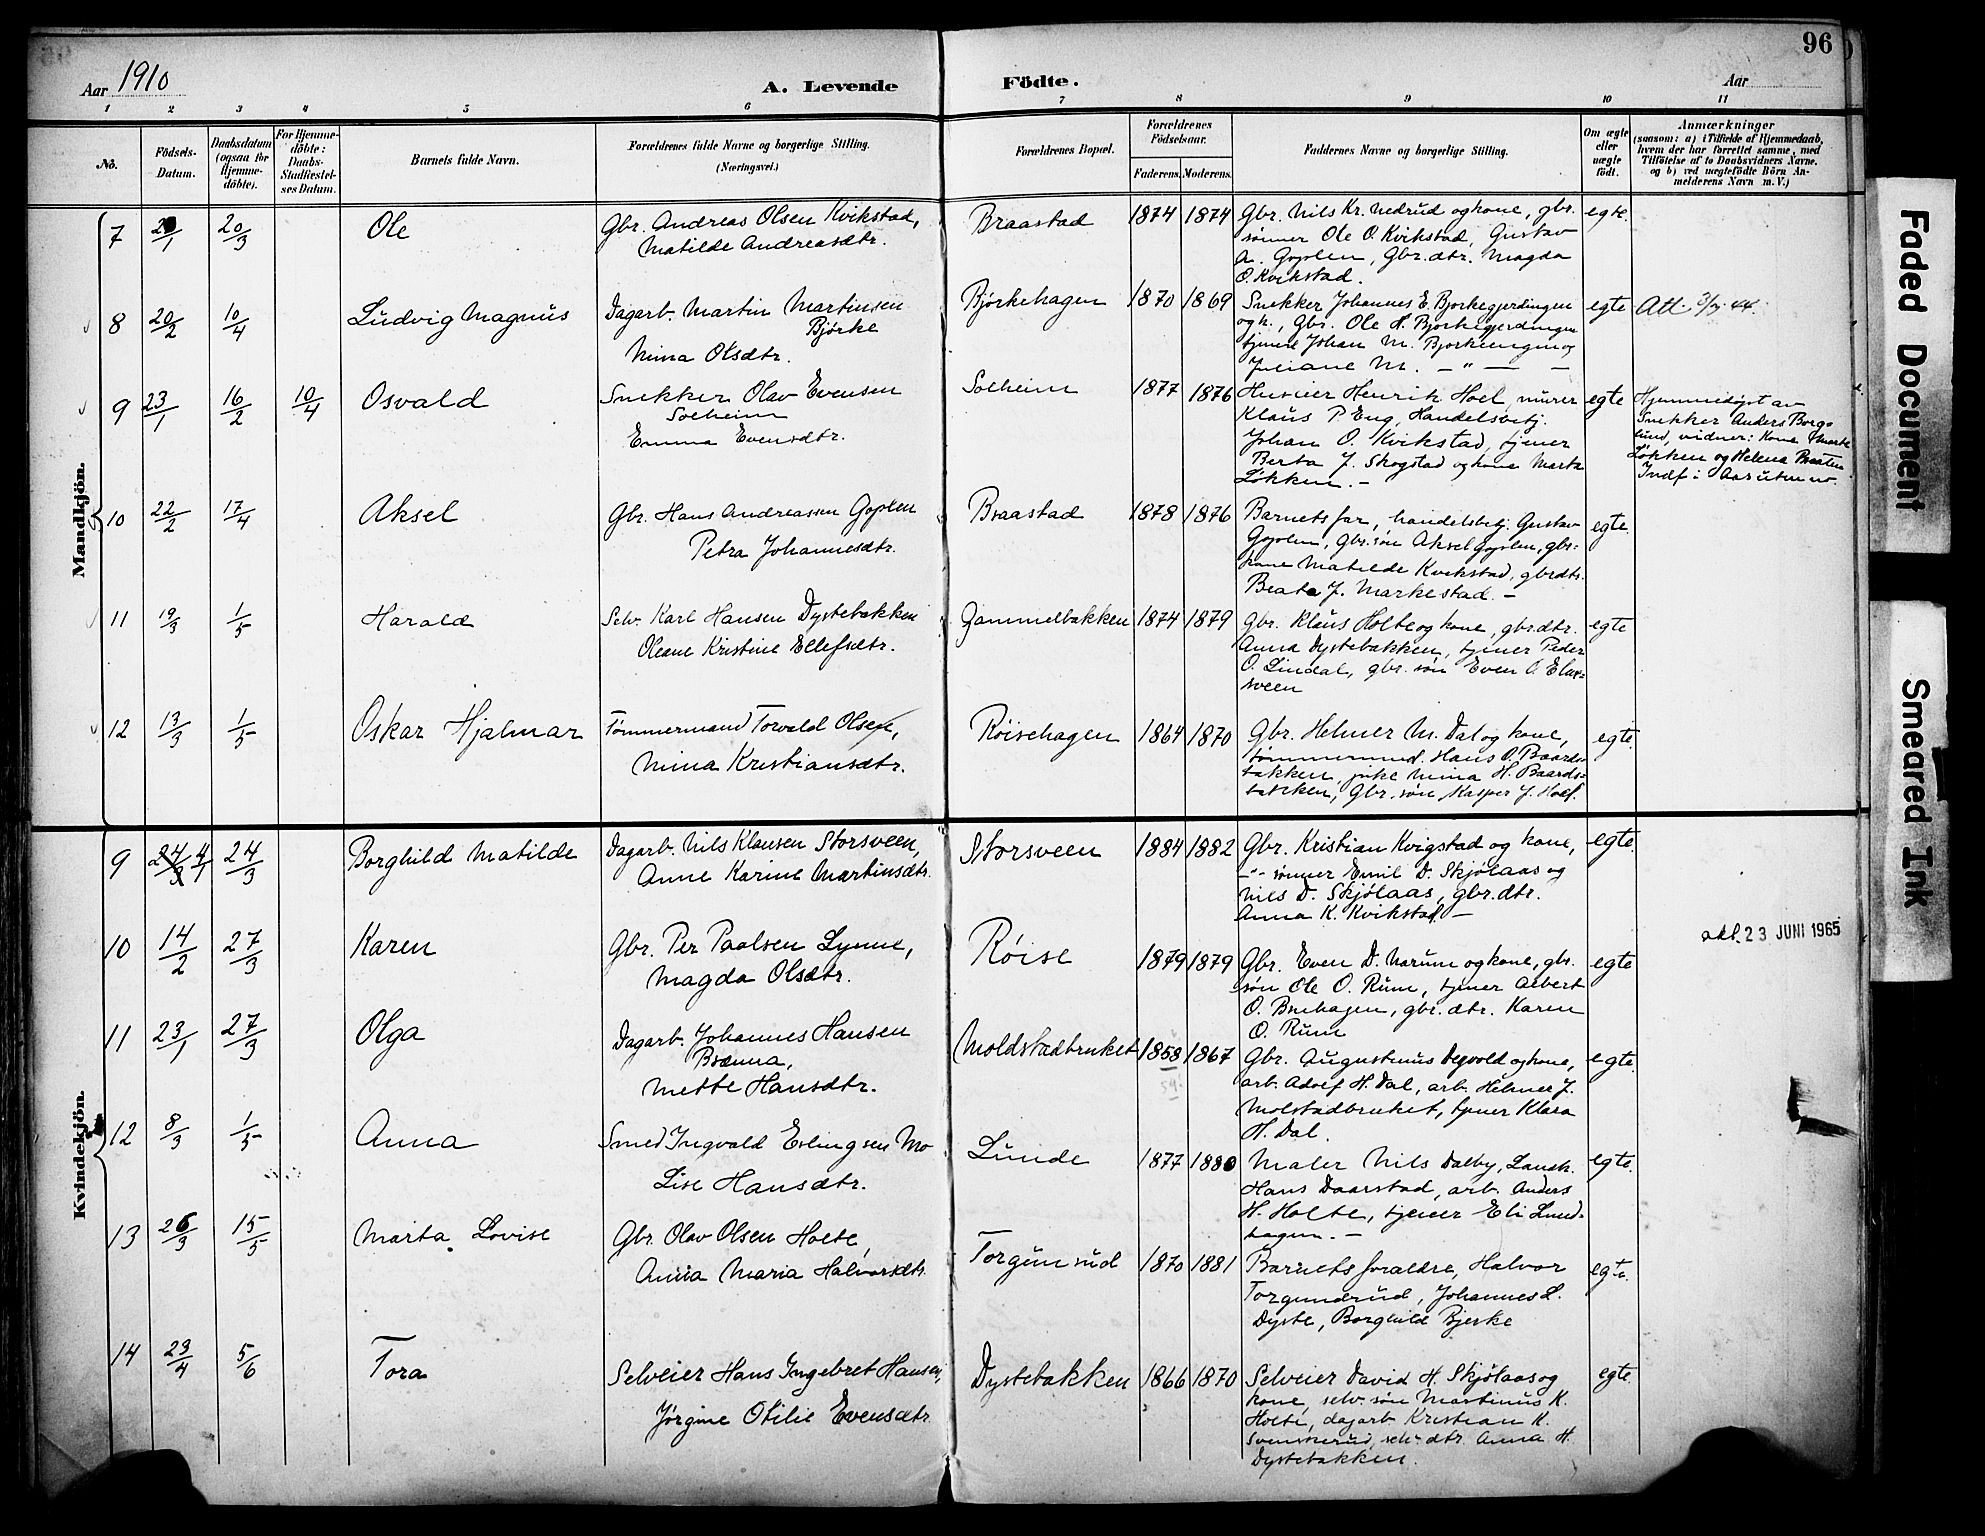 96
Aar 1910
A. Levende Födte.
Aar
1 2 3 4 5 6 7 8 9 10 11
Nö.
Födsels-Datum.
Daabsdatum (ogsaa for Hjemme-döbte).
For Hjemme-döbte: Daabs-Stadfæstel-ses Datum.
Barnets fulde Navn.
Forældrenes fulde Navne og borgerlige Stilling. (Næringsvei.)
Forældrenes Bopæl.
Forældrenes Födselsaar.
Faderens. Moderens.
Faddernes Navne og borgerlige Stilling.
Om ægte eller uægte födt.
Anmærkninger
(saasom: a) i Tilfælde af Hjemmedaab,
hvem der har forrettet samme, med
Tilföielse af to Daabsvidners Navne.
og b) ved uægtefödte Börn An-
melderens Navn m. V.)
Mandkjön.
7 2/1 20/3 Ole
Gbr. Andreas Olsen Kvikstad,
Matilde Andreasdtr.
Braastad 1874 1874
Gbr. Nils Kr. Nedrud og kone, gbr.
sønner Ole O. Kvikstad, Gustav
A. Goplen, Gbr. dtr. Magda
O. Kvikstad.
egte.
8 20/2 10/4 Ludvig Magnus
Dagarb. Martin Martinsen
Bjørke
Nina Olsdtr.
Bjørkehagen 1870 1869
Snekker Johannes E. Bjorkegjerdingen
og k., Gbr. Ole H. Bjorkegjerdingen
Johan M. Bjorkeengen og
Juliane M. — " —
egte Att 3/7 44.
9 23/1 16/2 10/4 Osvald
Snekker Olav Evensen
Solheim
Emma Evensdtr.
Solheim 1877 1876
Huseier Henrik Hoel, murer
Klaus P. Eng, Handelsbetj.
Johan O. Kvikstad, tjener
Berta J. Skogstad og kone Marta
Løkken. —
egte
Hjemmedøpt av
Snekker Anders Borge
lund, vidner: Kone Marte
Løkken og Helena Braaten
Indf i
10 22/2 17/4 Aksel
Gbr. Hans Andreassen Goplen
Petra Johannesdtr.
Braastad 1878 1876
Barnets far, handelsbetj. Gustav
Goplen, Gbr. søn Aksel Goplen, gbr=
kone Matilde Kvikstad, gbrdtr.
Beata J. Markestad. —
egte.
11 19/3 1/5 Harald
Selv. Karl Hansen Dystebakken
Oleane Kristine Ellefsdtr.
Gammelbakken 1874 1879
Gbr. Klaus Holte og kone, gbrdtr.
Anna Dystebakken, tjener Peder
O. Lindal, gbr. søn Even O. Elus=
sveen
egte
12 13/3 1/5 Oskar Hjalmar
Tømmermand Torvald Olsen,
Nina Kristiansdtr.
Røisehagen 1864 1870
Gbr. Helmer M. Dal og kone,
tømmermd. Hans O. Baards=
bakken, pike Nina H. Baards=
bakken, Gbr. søn Kasper J. Hoel.
egte.
Kvindekjön.
9 24/3 4/1 24/3 Borghild Matilde
Dagarb. Nils Klausen Storsveen,
Anne Karine Martinsdtr.
Storsveen 1884 1882
Gbr. Kristian Kvigstad og kone,
— " — sønner Emil D. Skjølaas og
Nils D. Skjølaas, gbr. dtr.
Anna K. Kvikstad. —
egte.
10 14/2 27/3 Karen
Gbr. Per Paalsen Lynne,
Magda Olsdtr.
Røise 1879 1879
Gbr. Even D. Narum og kone, gbr.
søn Ole O. Rum, tjener Albert
O. Bruhagen, gbr. dtr. Karen
O. Rum
egte
akt. 23 JUNI 1965
11 23/1 27/3 Olga
Dagarb. Johannes Hansen
Brænna,
Mette Hansdtr.
Moldstadbruket 1858 1867
Gbr. Augustinus Degvold og kone,
arb. Adolf H. Dal, arb. Helmer J.
Molstadbruket, tjener Klara
H. Dal.
egte.
12 8/3 1/5 Anna
Smed Ingvald Erlingsen Mo
Lise Hansdtr.
Lunde 1877 1880
Maler Nils Dalby, Landh.
Hans Daarstad, arb. Anders
H. Holte, tjener Eli Lund-
hagen. —
egte.
13 26/3 15/5 Marta Lovise
Gbr. Olav Olsen Holte,
Anna Maria Halvorsdtr.
Torgunrud 1870 1881
Barnets foreldre, Halvor
Torgundrud, Johannes L.
Dyste, Borghild Bjerke
egte.
14 23/4 5/6 Tora
Selveier Hans Ingebret Hansen,
Jørgine Otilie Evensdtr.
Dystebakken 1866 1870
Selveier David H. Skjølaas og
kone, selv. søn Martinus K.
Holte, dagarb. Kristian K.
Svenskerud, selv. dtr. Anna H.
Dystebakken.
egte.
Faded Document
Smeared Ink